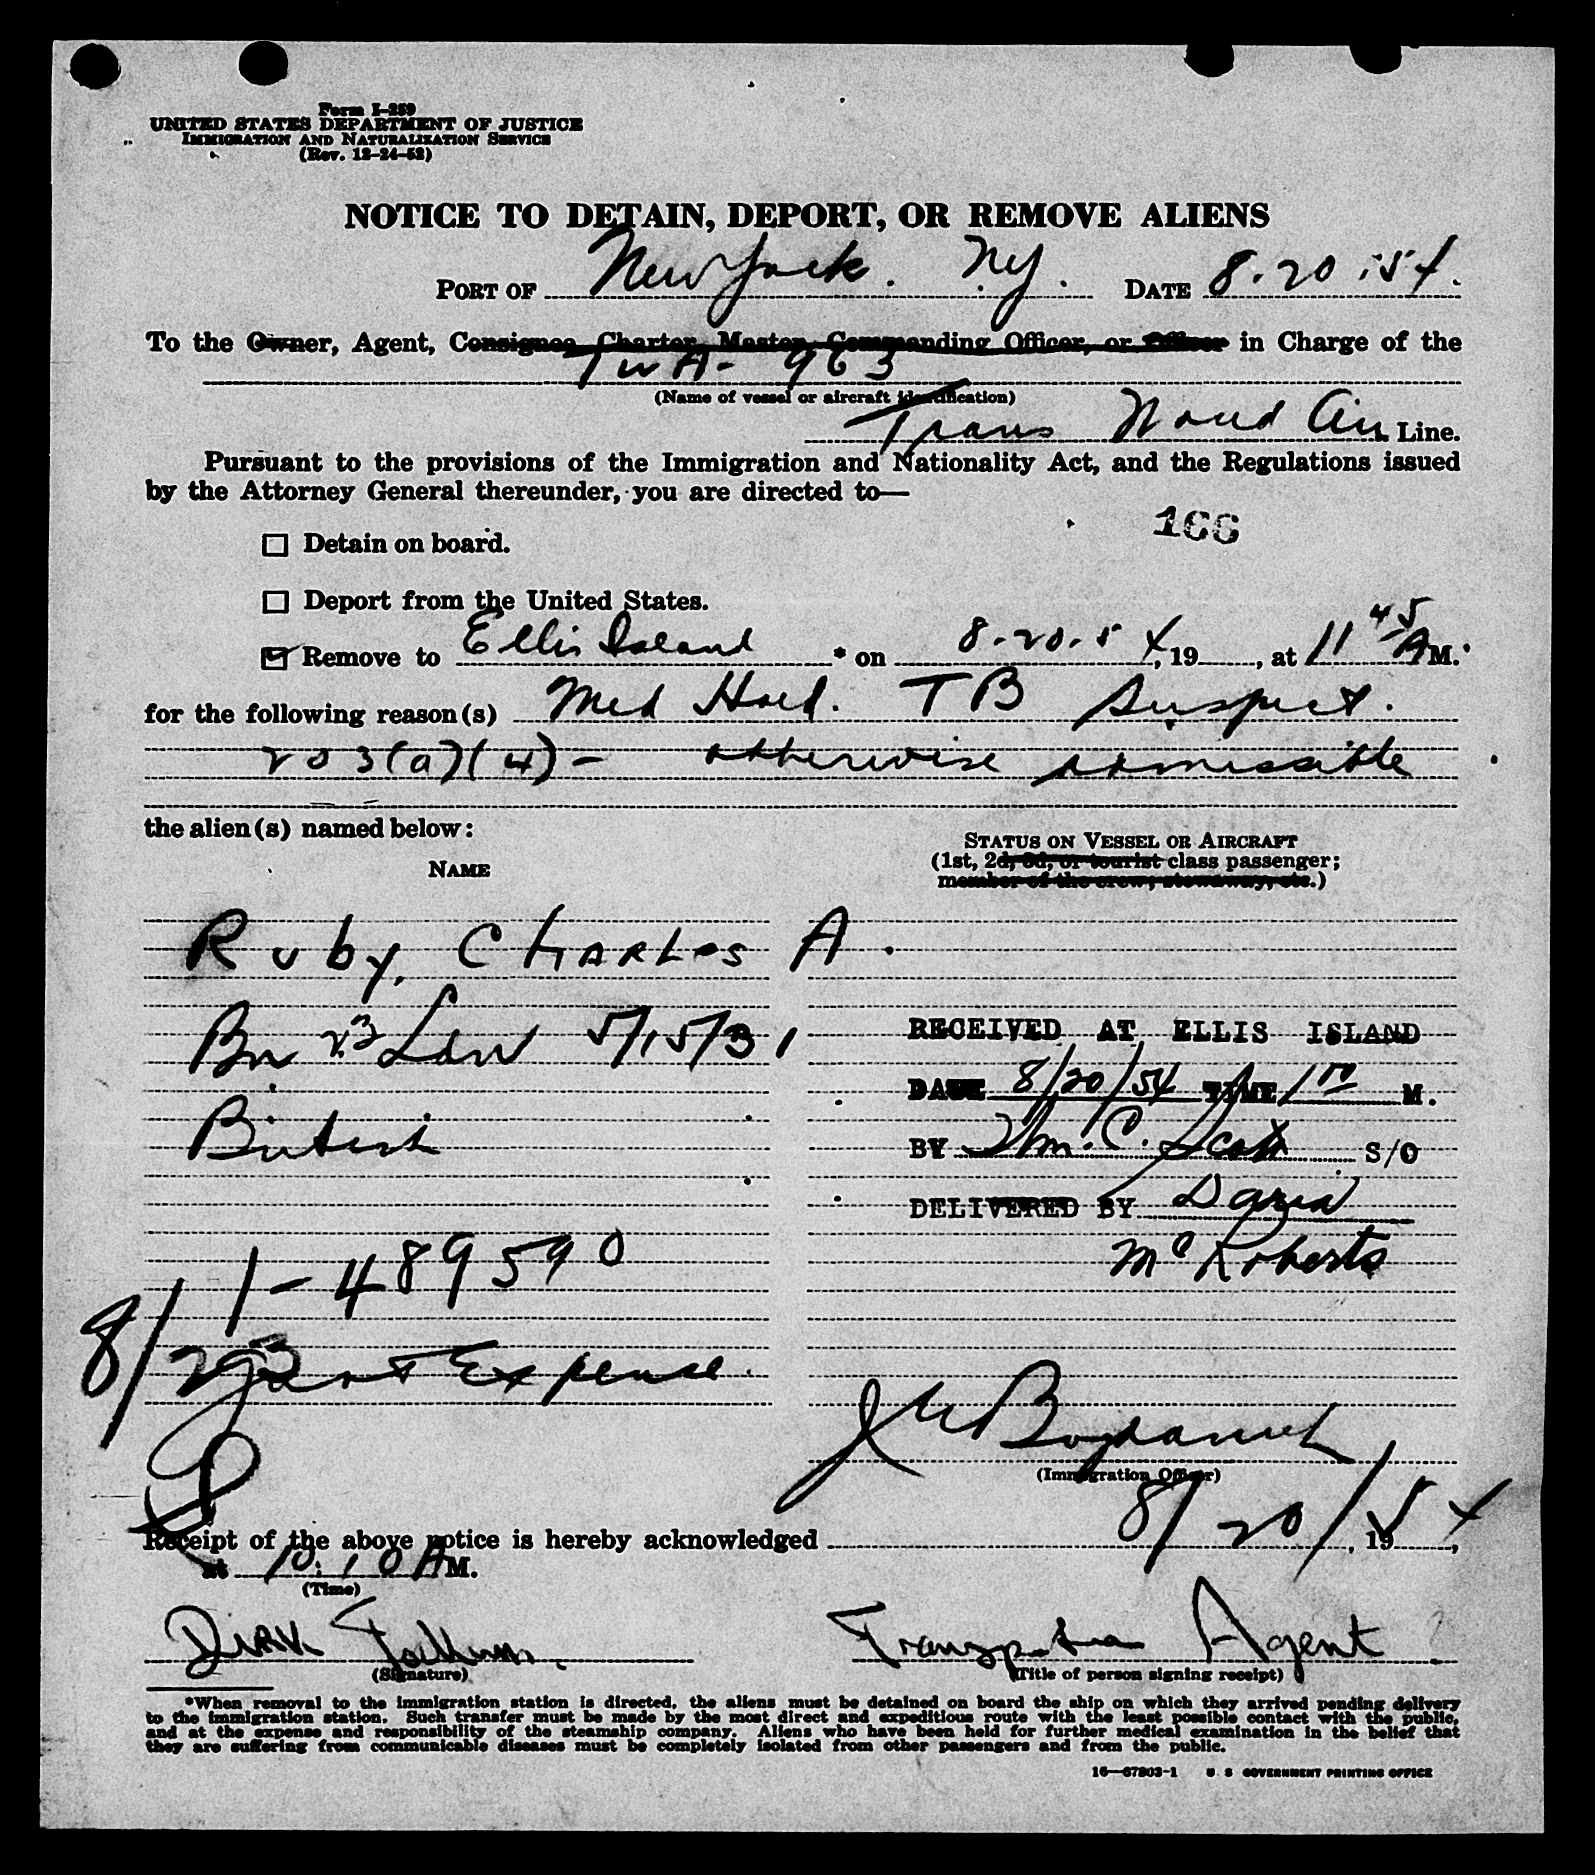 Form I-259
UNITED STATES DEPARTMENT OF JUSTICE
IMMIGRATION AND NATURALIZATION SERVICE
(Rev. 12-24-52)
NOTICE TO DETAIN, DEPORT, OR REMOVE ALIENS
PORT OF New York. NY. DATE 8.20.54.
To the Owner, Agent, Consignee, Charter, Master, Commanding Officer, or Officer in Charge of the
TWA- 963
(Name of vessel or aircraft identification)
Trans World Air Line.
Pursuant to the provisions of the Immigration and Nationality Act, and the Regulations issued
by the Attorney General thereunder, you are directed to—
Detain on board.
Deport from the United States.
Remove to Ellis Island * on 8.20.54, 19, at 11 45 AM.
for the following reason(s) Med Hold. TB Suspect.
203(a)(4) - otherwise admissible
the alien(s) named below:
STATUS ON VESSEL OR AIRCRAFT
(1st, 2d, 3d, or tourist class passenger;
member of the crew, stowaway, etc.)
NAME
Ruby, Charles A.
5/15/31
British
RECEIVED AT ELLIS ISLAND
DATE 8/20/54 TIME 1 M.
BY Wm. C. Scott S/O
DELIVERED BY David
McRoberts
1-489590
8/23
Expense.
(Immigration Officer)
Receipt of the above notice is hereby acknowledged 8/20/54, 19,
at 10:10 AM.
(Time)
Dirk Agent
(Signature) (Title of person signing receipt)
*When removal to the immigration station is directed, the aliens must be detained on board the ship on which they arrived pending delivery
to the immigration station. Such transfer must be made by the most direct and expeditious route with the least possible contact with the public,
and at the expense and responsibility of the steamship company. Aliens who have been held for further medical examination in the belief that
they are suffering from communicable diseases must be completely isolated from other passengers and from the public.
16—67803-1 U. S. GOVERNMENT PRINTING OFFICE